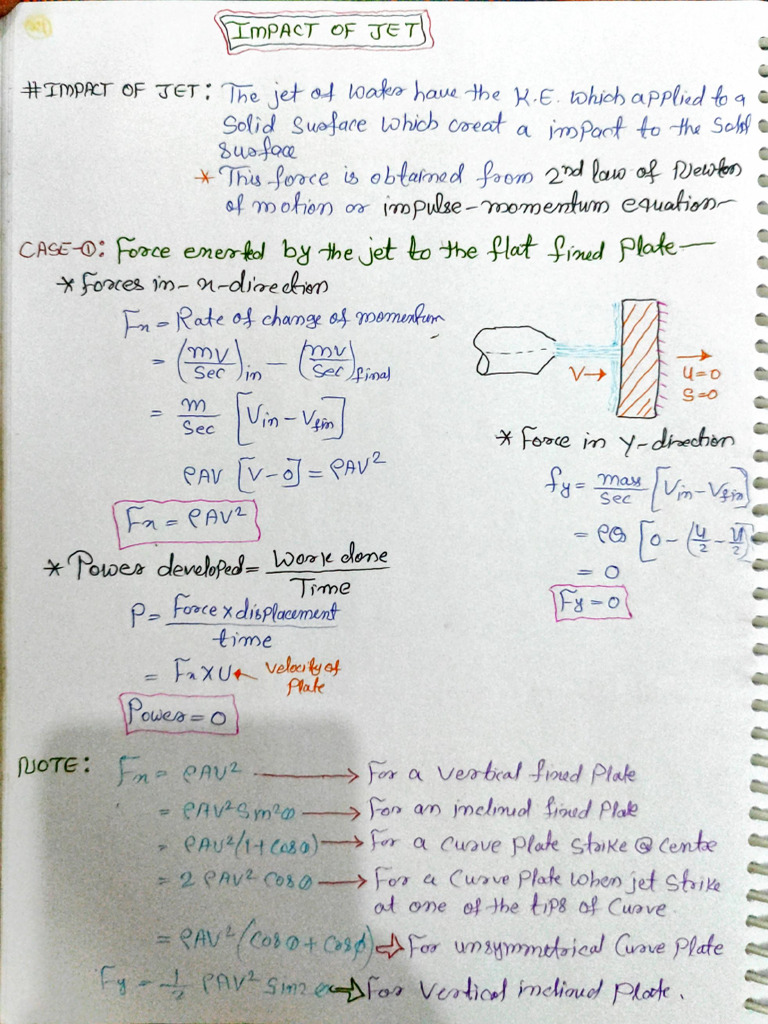 IMPACT OF JET
#IMPACT OF JET: The jet of water have the K.E. which applied to a
Solid Surface which creat a impact to the Solid
surface
* This force is obtained from 2nd law of Newton
of motion or impulse-momentum equation-
CASE-①: Force exerted by the jet to the flat fixed Plate—
* Forces in- x-direction
Fx = Rate of change of momentum
= (mv/Sec)in - (mv/Sec)final
= m/Sec [Vin - Vfin]
ρAV [V-0] = ρAV²
Fx = ρAV²
V→
u=0
S=0
* Force in Y-direction
fy = mass/Sec [Vin - Vfin]
= ρQ [0 - (u/2 - u/2)]
= 0
Fy = 0
* Power developed = Work done/Time
P = Force x displacement/time
= Fx x U ← Velocity of
Plate
Power = 0
NOTE: Fx = ρAV² → For a vertical fixed Plate
= ρAV² Sin²θ → For an inclined fixed Plate
= ρAV²(1+cosθ) → For a curve plate strike @ Centre
= 2 ρAV² cosθ → For a Curve Plate when jet Strike
at one of the tips of Curve.
= ρAV²(cosθ + cosϕ) ⇒ For unsymmetrical Curve Plate
Fy = 1/2 ρAV² Sin2θ ⇒ For Vertical inclined Plate.